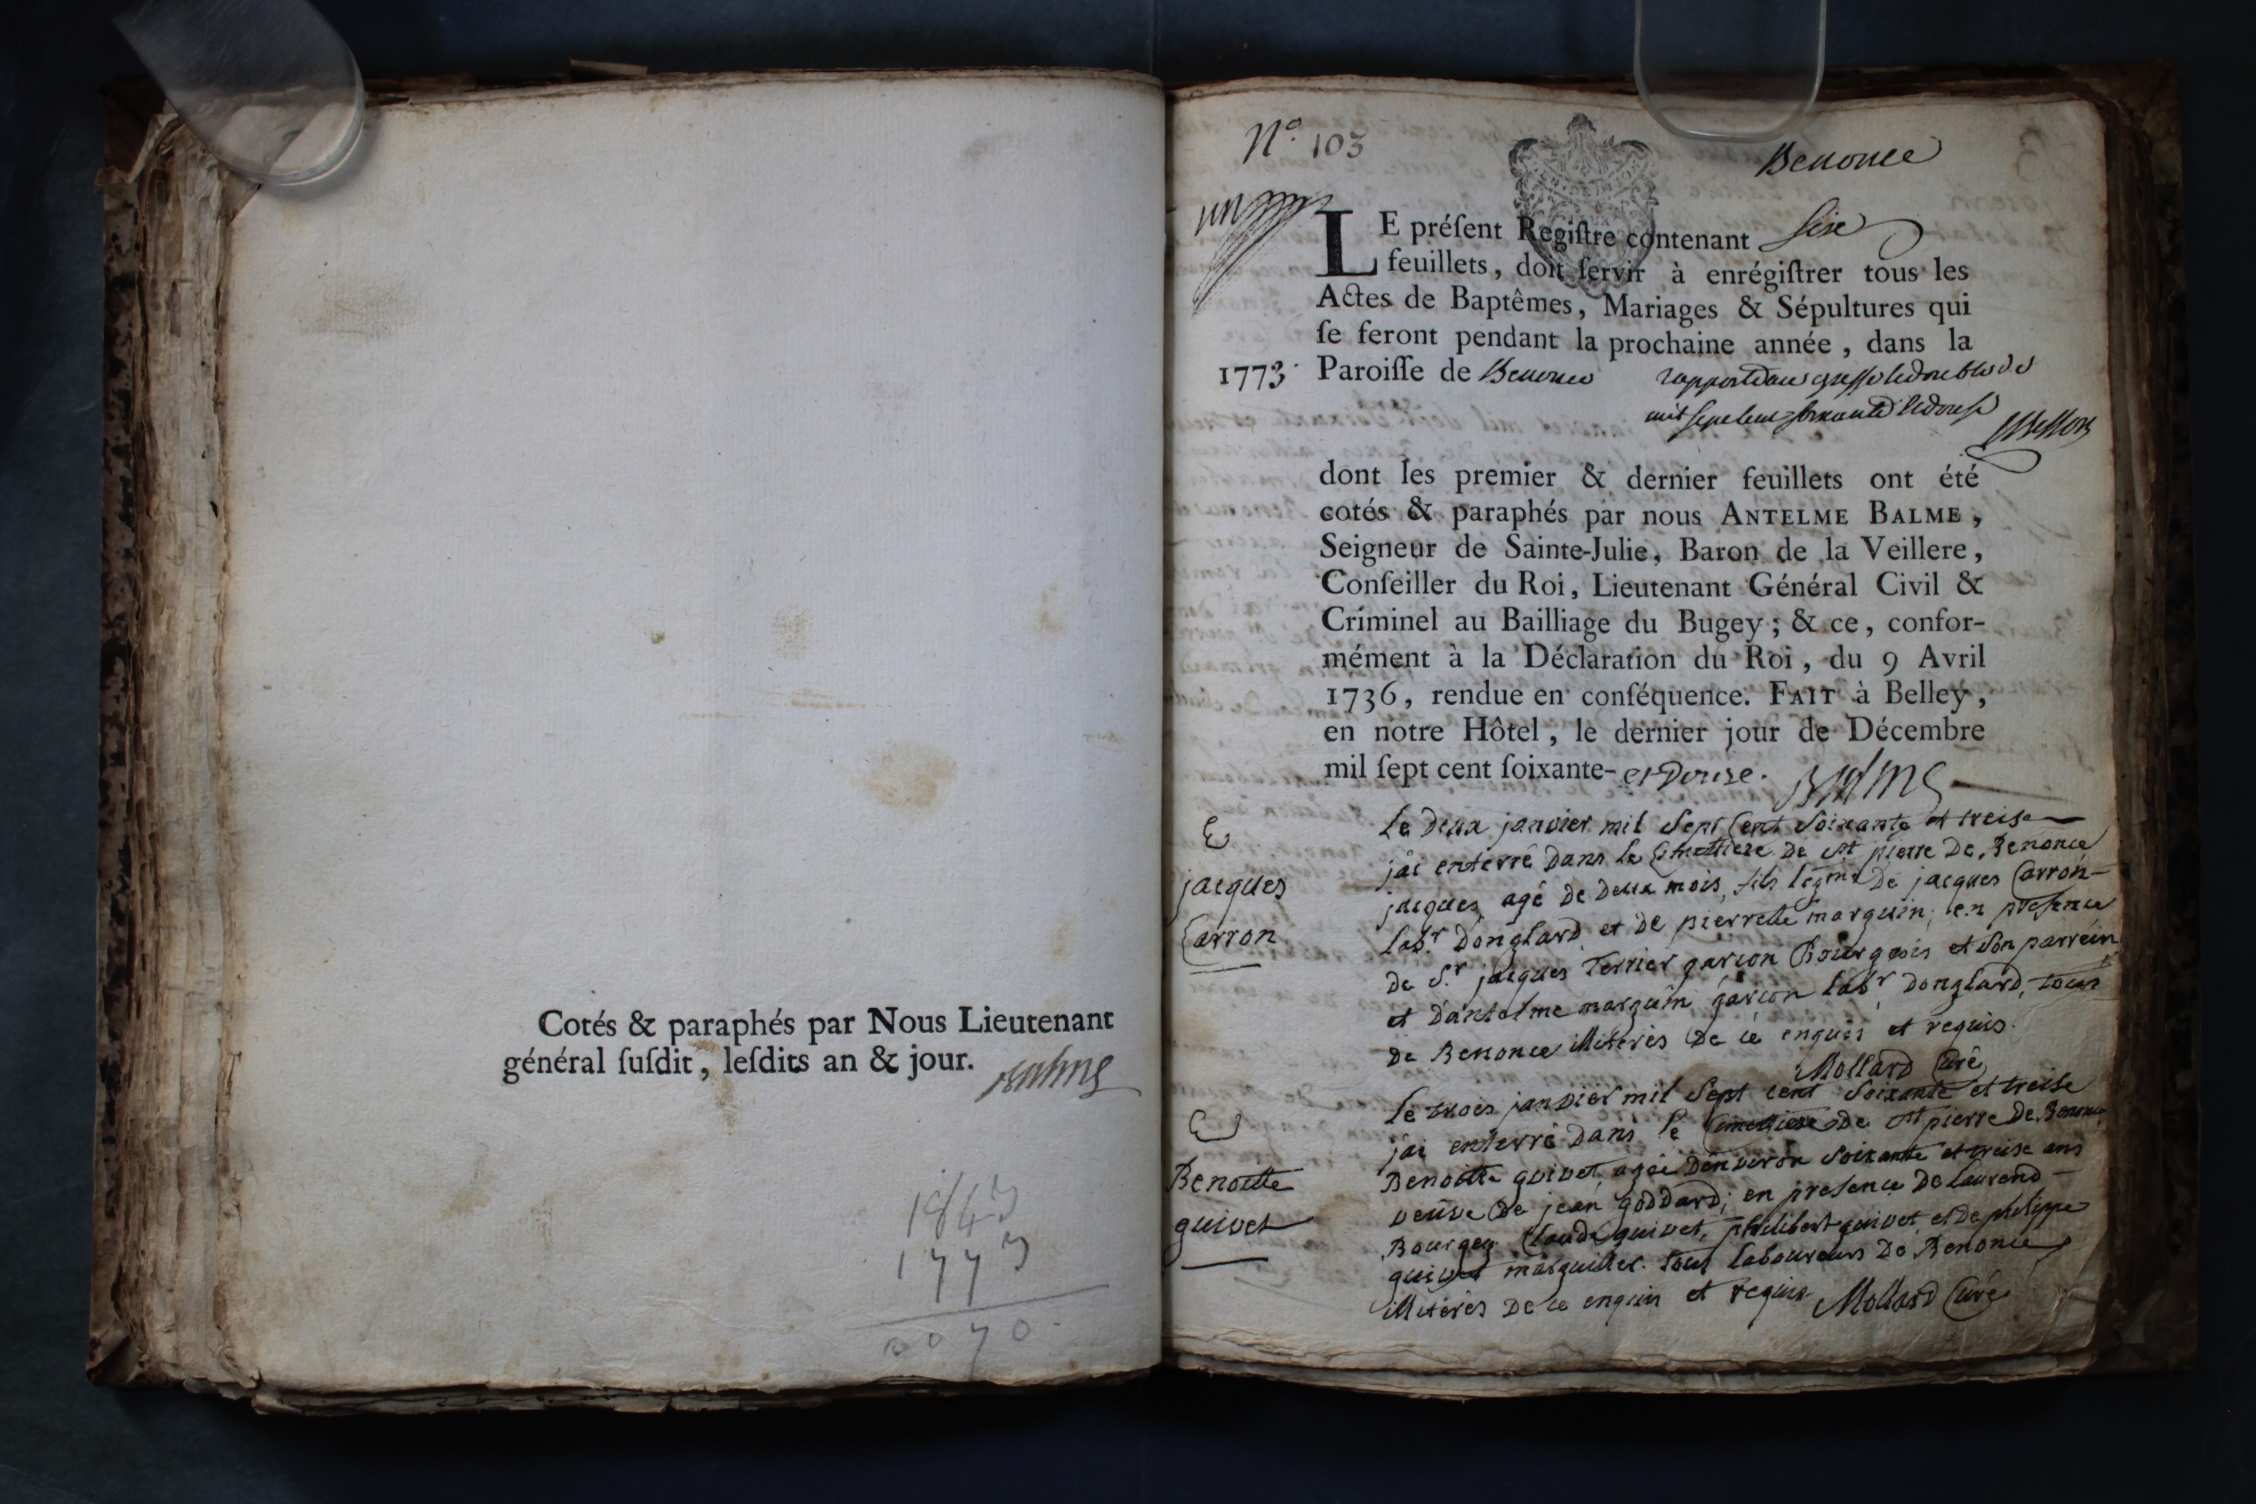 Cotés & paraphés par Nous Lieutenant
général ſuſdit, leſdits an & jour. Balme
1843
1773
0070
N.º 103
Benonce
LE préſent Regiſtre contenant Sixe
feuillets, doit ſervir à enrégiſtrer tous les
Actes de Baptêmes, Mariages & Sépultures qui
ſe feront pendant la prochaine année, dans la
1773 Paroiſſe de Benonce
dont les premier & dernier feuillets ont été
cotés & paraphés par nous ANTELME BALME,
Seigneur de Sainte-Julie, Baron de la Veillere,
Conſeiller du Roi, Lieutenant Général Civil &
Criminel au Bailliage du Bugey; & ce, confor-
mément à la Déclaration du Roi, du 9 Avril
1736, rendue en conſéquence. FAIT à Belley,
en notre Hôtel, le dernier jour de Décembre
mil ſept cent ſoixante-et Douze. Balme
E
jacques
Carron
Le Deux janvier mil Sept Cent Soixante et treise
jái enterré Dans le Cimettiere De St pierre De Benonce
jacques agé De Deux mois, fils légme De jacques Carron
labr Donglard et De pierrette marguin; en presence
De S.r jacques Terrier garcon Bourgeois et Son parrein
et D'antelme marguin garcon labr Donglard, tous
De Benonce illiterés De ce enquis et requis.
Mollard Curé
E
Benoitte
guivet
Le trois janvier mil Sept cent Soixante et treise
jai enterré Dans le Cimettiere De St pierre De Benonce
Benoitte guivet agée D'environ Soixante et treise ans
veuve De jean goddard; en presence De laurend
Bourgey Claude guivet, philibert guivet et De philippe
guivet marguiller. tous laboureurs De Benonce
illiterés De ce enquis et requis Mollard Curé